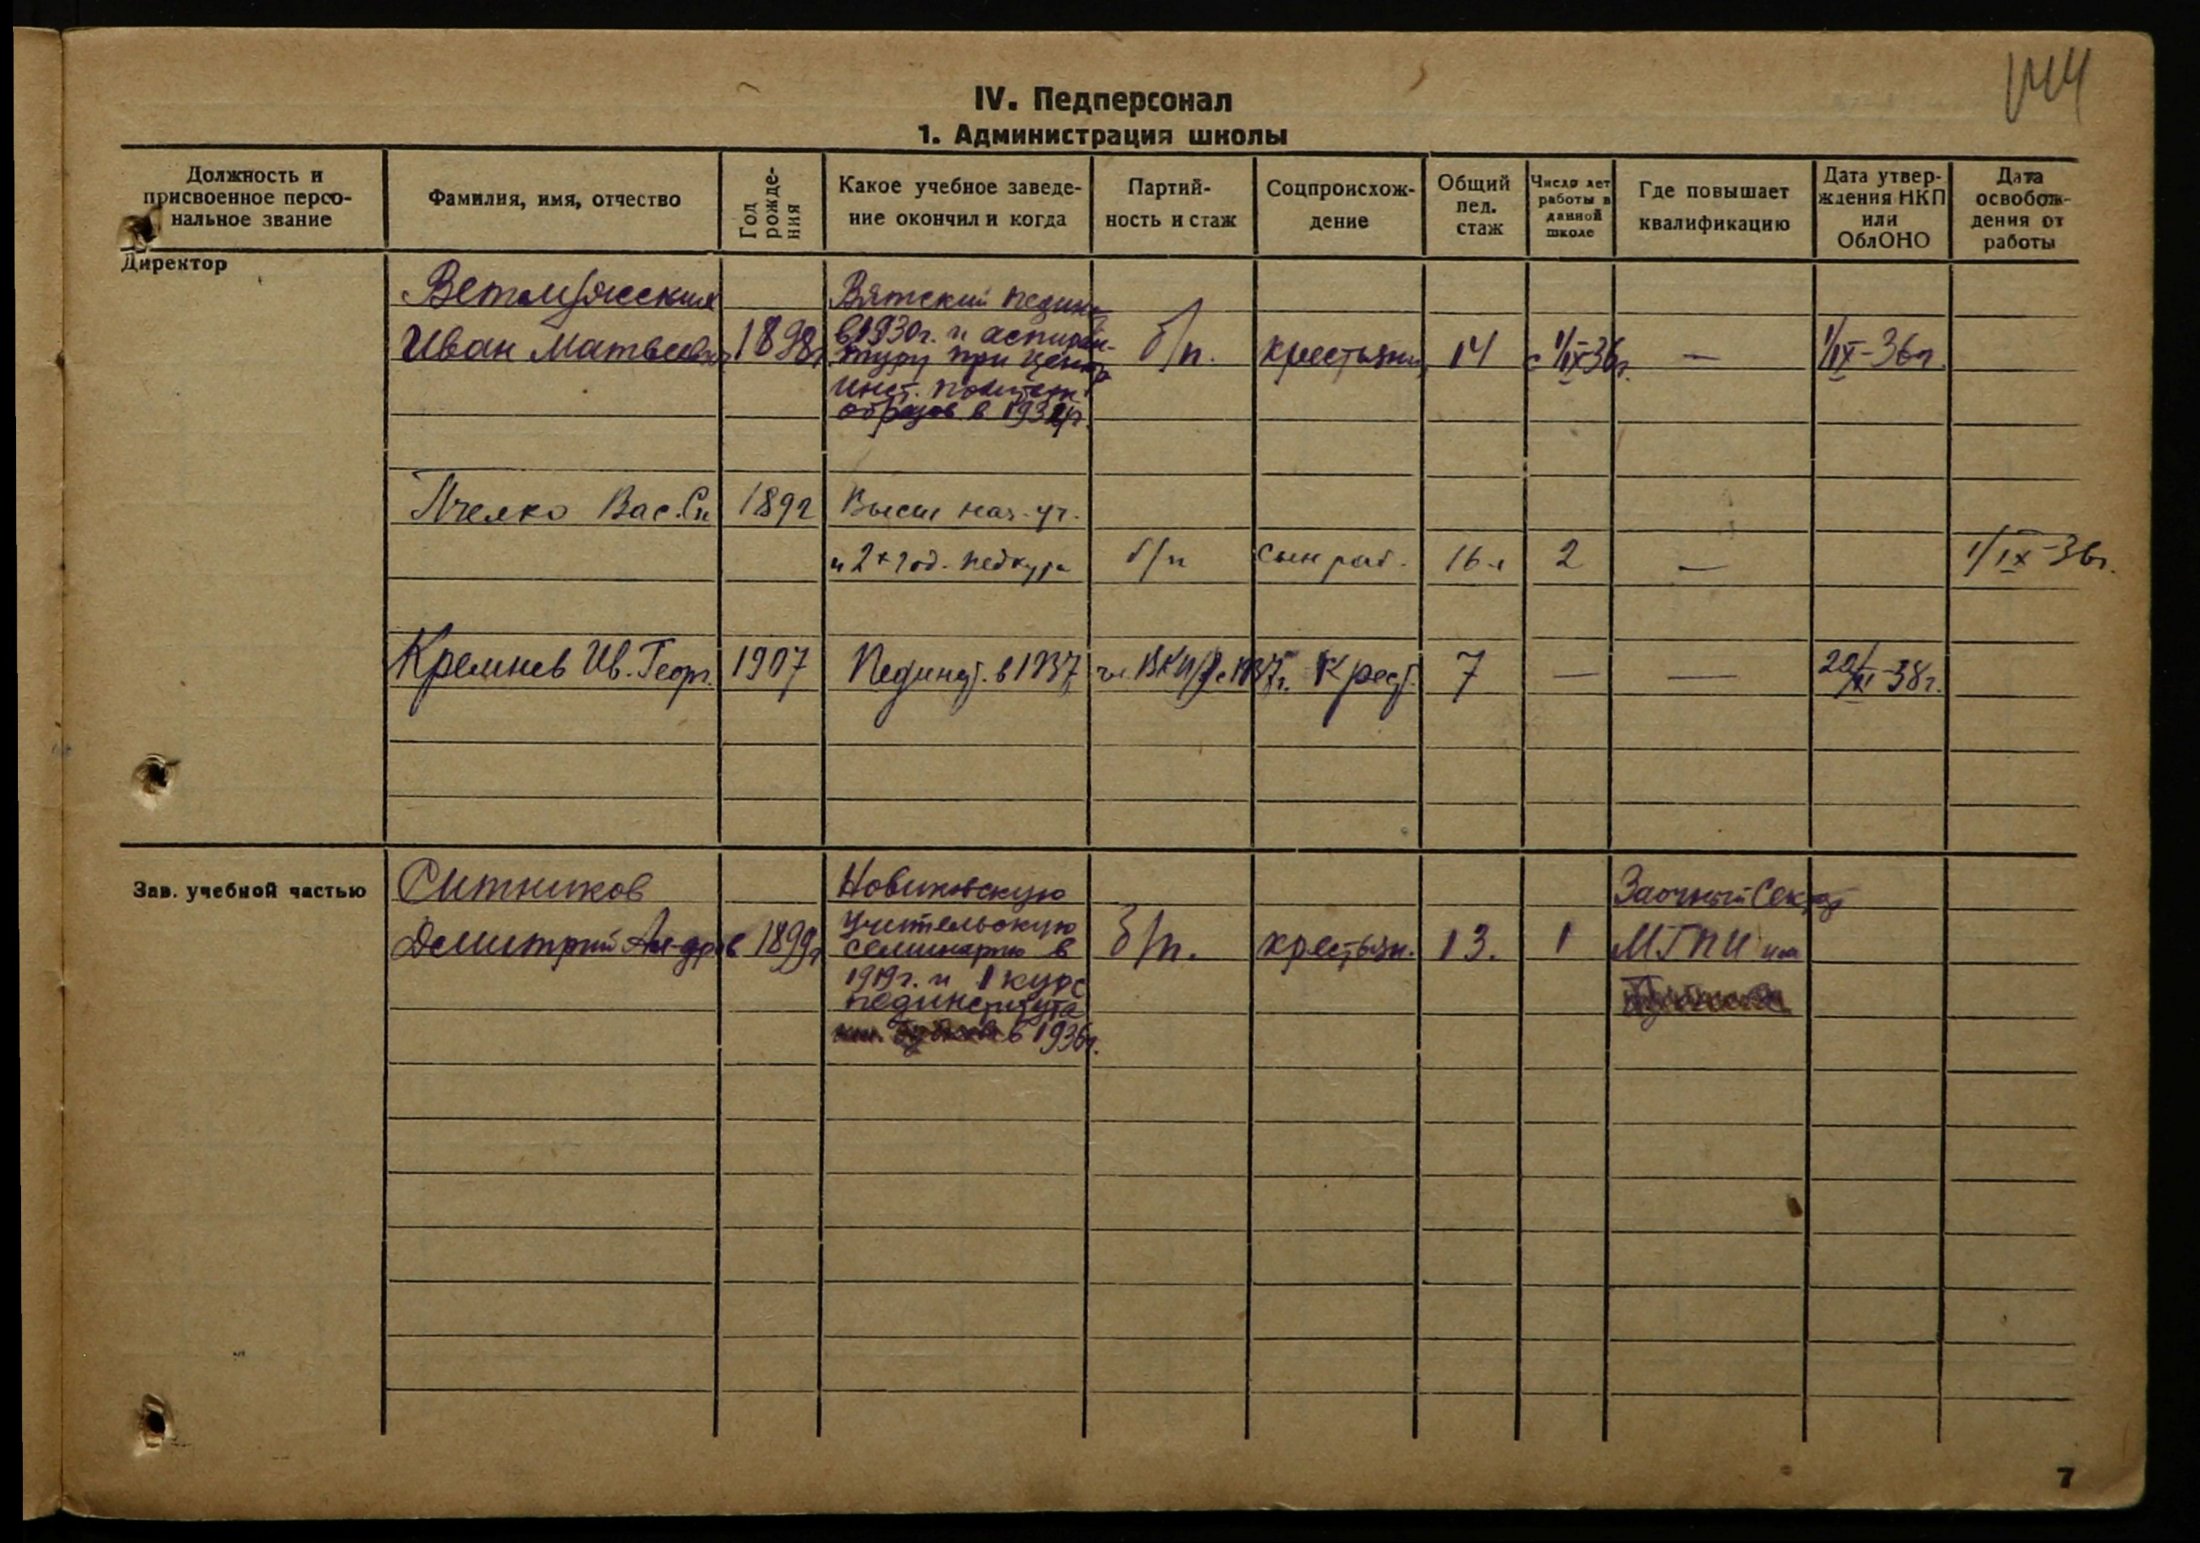 IV. Педперсонал
1. Администрация школы
Должность и присвоенное персональное звание
Фамилия, имя, отчество
Год рождения
Какое учебное заведение окончил и когда
Партийность и стаж
Соцпроисхождение
Общий пед. стаж
Число лет работы в данной школе
Где повышает квалификацию
Дата утверждения НКП или ОблОНО
Дата освобождения от работы
Директор
Иван Матвеевич 1898г б/п. крестьянин 14 с 1/IX-36г. — 1/IX-36г.
Вятский пединс
в 1930г. и аспиран-
туру при центр
инст. политехн.
образов. в 1932г.
Пчелко Вас. Сп. 1892 Высш нач. уч.
и 2х год. педкурс б/п сын раб. 16 л 2 — 1/IX-36г.
Кремнев Ив. Георг. 1907 Пединст. в 1937 чл. ВКП/б с 1937г. Крест. 7 — — 38г.
Зав. учебной частью
Ситников
Дмитрий Ал-дров 1899г б/п. крестьян. 13. 1
учительскую
семинарию в
1919г. и 1 курс
пединститута
в 1936г.
Заочный Сектор
МГПИ им
7